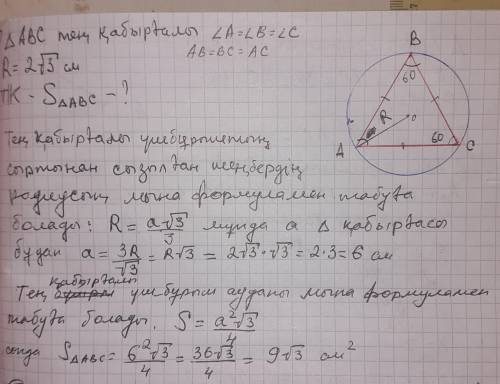 △ABC тең қабырғалы ∠A=∠B=∠C
AB=BC=AC
R=2√3 см
Т/К - S△ABC - ?
B
60
R
o
A
60
C
Тең қабырғалы үшбұрыштың
сыртынан сызылған шеңбердің
радиусын мына формуламен табуға
болады: R = a√3/3 мұнда a △ қабырғасы
бұдан a = 3R/√3 = R√3 = 2√3·√3 = 2·3 = 6 см
Тең қабырғалы үшбұрыш ауданы мына формуламен
табуға болады. S = a²√3/4
сонда S△ABC = 6²√3/4 = 36√3/4 = 9√3 см²